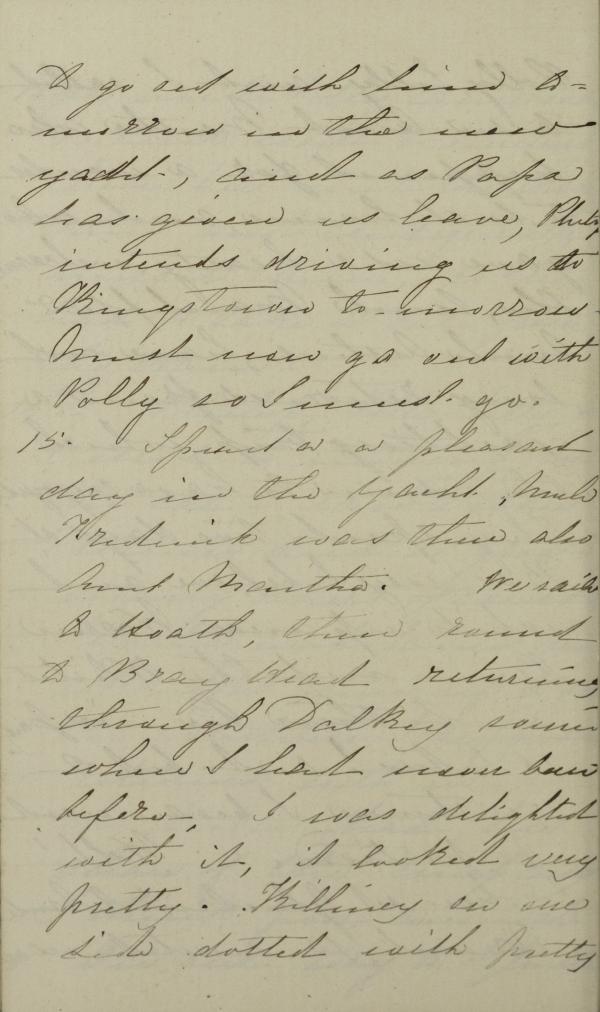 to go out with him to-
morrow in the new
yacht, and as Papa
has given us leave, Philip
intends driving us to
Kingstown to-morrow.
Must now go out with
Polly so I must go.
15. Spent a a pleasant
day in the Yacht, Uncle
Frederick was there also
Aunt Martha. We sailed
to Hoath, then round
to Bray Head returning
through Dalkey sound
where I had never been
before, I was delighted
with it, it looked very
pretty. Killiney on one
side dotted with pretty